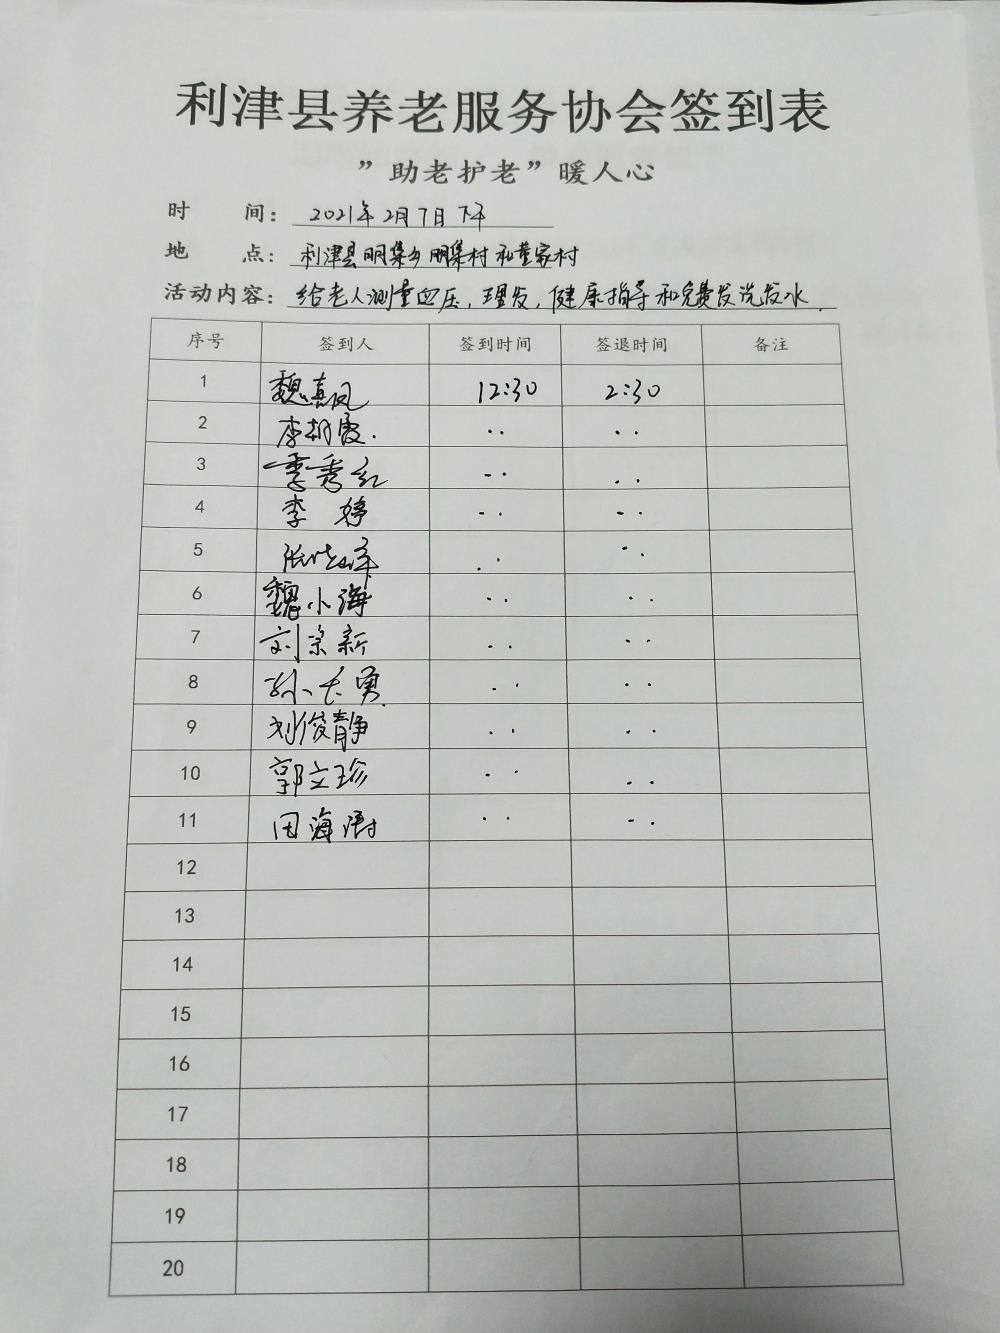 利津县养老服务协会签到表
”助老护老”暖人心
时 间: 2021年2月7日下午
地 点: 利津县明集乡明集村和董家村
活动内容: 给老人测量血压,理发,健康指导和免费发洗发水.
序号 签到人 签到时间 签退时间 备注
1 魏真凤 12:30 2:30
2 李树霞. ·· ··
3 季秀红 ·· ··
4 李婷 ·· ··
5 ·· ··
6 魏小海 ·· ··
7 刘宗新 ·· ··
8 孙大勇 ·· ··
9 刘俊静 ·· ··
10 郭文珍 ·· ··
11 田海澍 ·· ··
12
13
14
15
16
17
18
19
20